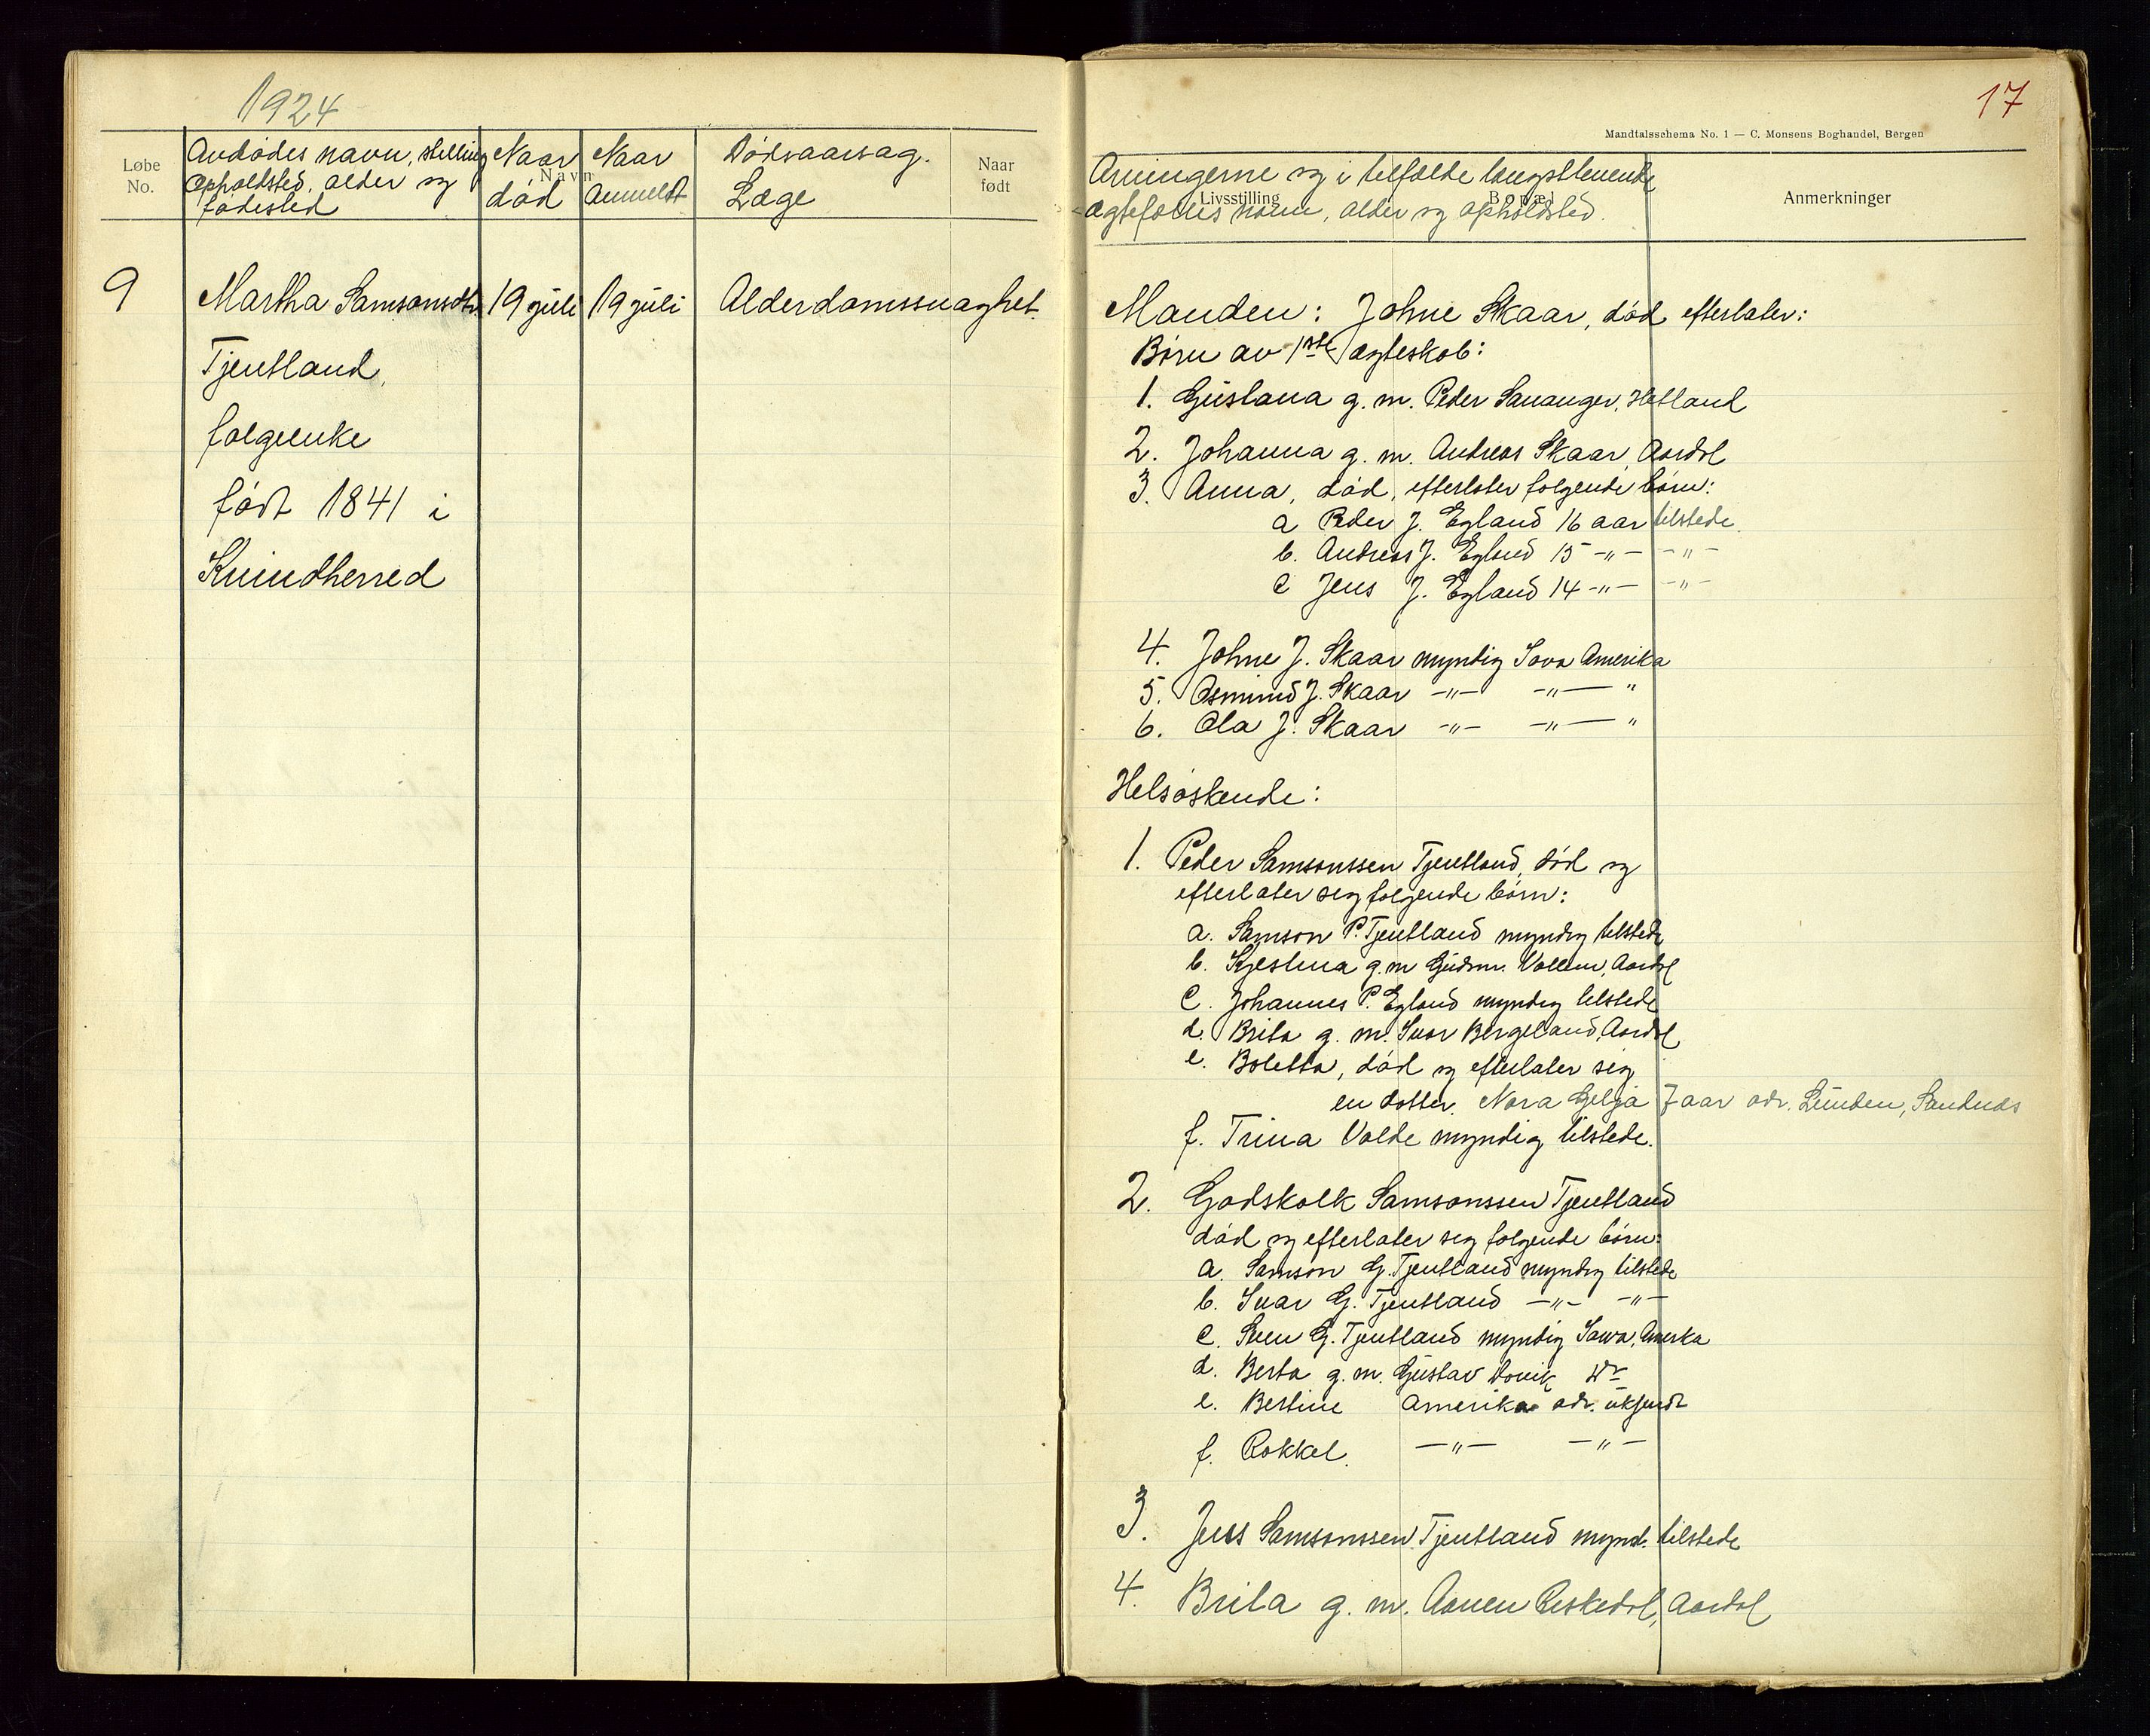 1924
17
Mandtalsschema No. 1 — C. Monsens Boghandel, Bergen
Løbe No.
Navn
Naar født
Livsstilling
Bopæl
Anmerkninger
Avdødes navn, stilling
opholdsted, alder og
fødested
Naar
død
Naar
anmeldt
Dødsaarsag.
Læge
Arvingerne og i tilfælde længstlevende
ægtefælles navn, alder og opholdsted.
9
Martha Samsonsdtr. 19 juli 19 juli Alderdomssvaghet.
Tjentland,
folgeenke
født 1841 i
Kvindherred
Manden: Johne Skaar, død efterlater:
Børn av 1ste ægteskab:
1. Gustava g. m. Peder Sauanger, Hetland
2. Johanna g. m. Andreas Skaar, Aardal
3. Anna, død, efterlater følgende børn:
a Peder J. Egland 16 aar tilstede
b. Andreas J. Egland 15 -"- -"-
c Jens J. Egland 14 -"- -"-
4. Johne J. Skaar myndig Iova Amerika
5. Osmund J. Skaar -"- -"- "
6. Ola J. Skaar -"- -"- "
Helsøskende:
1. Peder Samsonssen Tjentland, død og
efterlater seg følgende børn:
a. Samson P. Tjentland myndig tilstede
b. Kjestina g. m Gudm. Valheim, Aardal
c. Johannes P. Egland myndig tilstede
d. Brita g. m. Ivar Bergeland, Aardal
e. Boletta, død og efterlater sig
en datter. Nora Gelja 7 aar adr. Lunden, Sandnes
f. Trina Valde myndig tilstede.
2. Godskalk Samsonssen Tjentland
død og efterlater seg følgende børn:
a. Samson G. Tjentland myndig tilstede
b. Ivar G. Tjentland -"- -"-
c. Sven G. Tjentland myndig Iowa, Amerka
d. Berta g. m. Gustav Dovik Do
e. Bertine Amerika adr. ukjendt
f. Rakkel. -"- -"-
3. Jens Samsonssen Tjentland mynd. tilstede
4. Brita g. m. Aanen Riskedal, Aardal